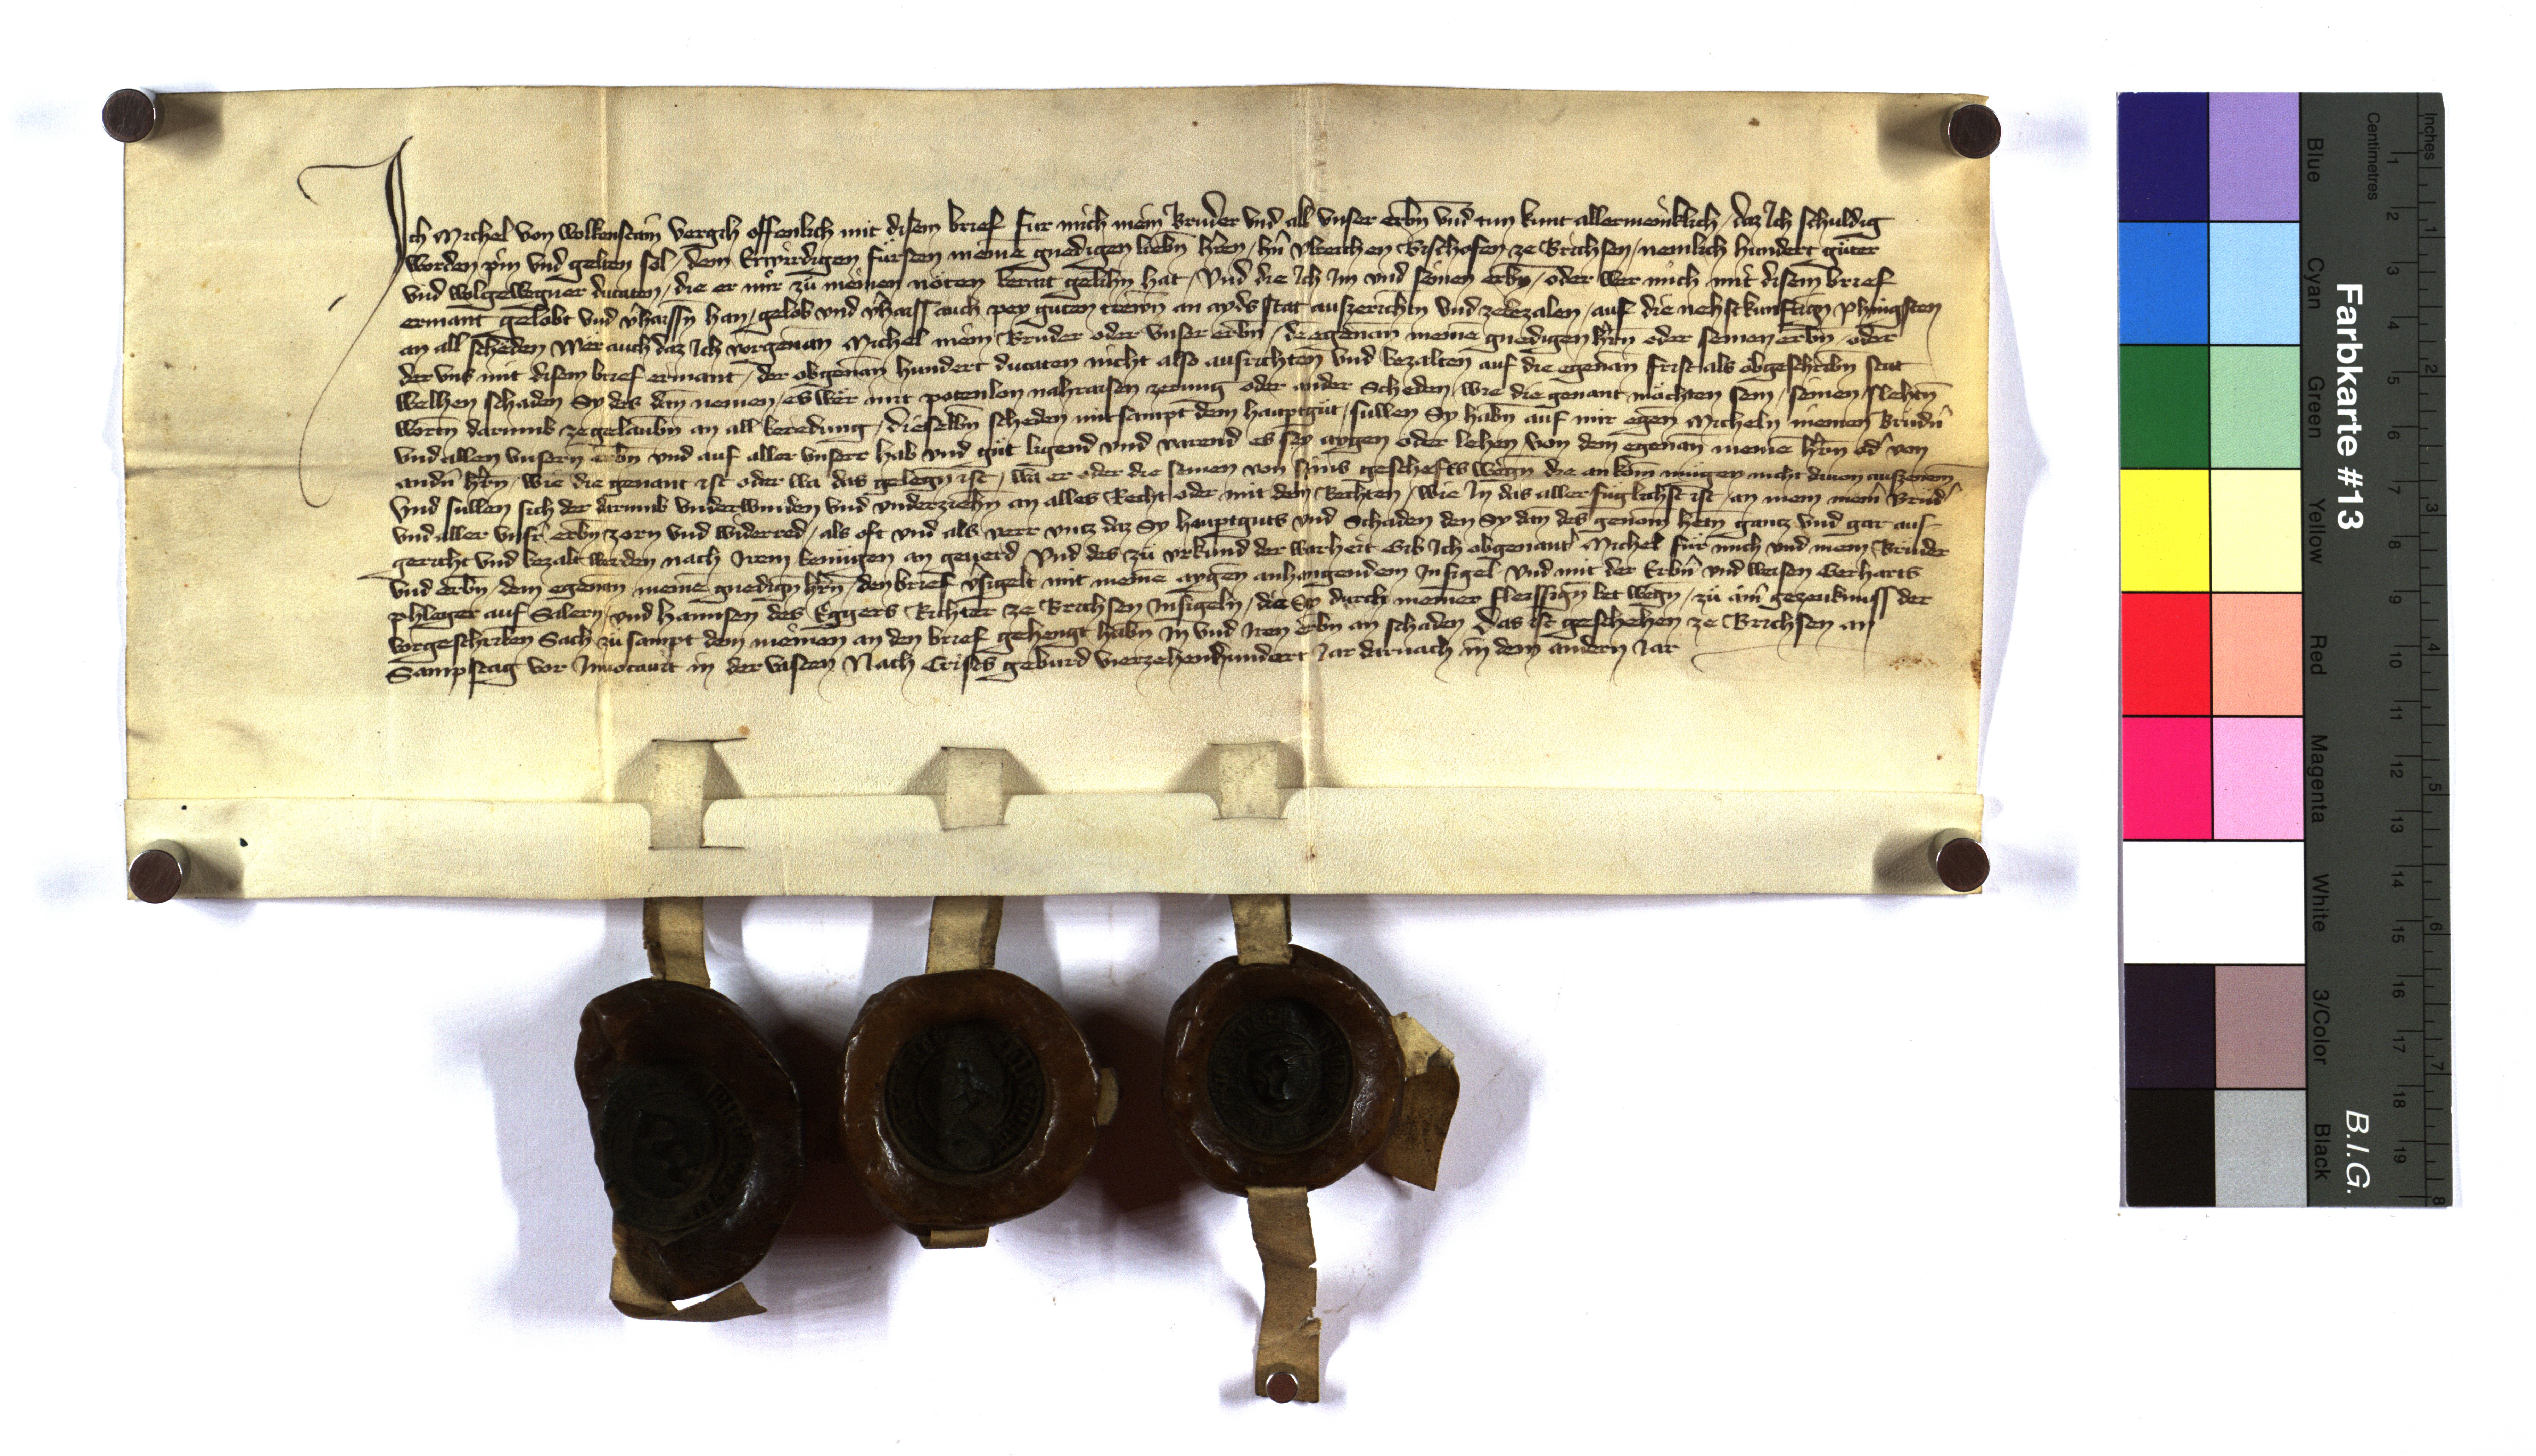 Ich Michel von Wolkenstain vergih offenlich mit disem brief fur mich mein Bruder vnd all vnser erbn vnd tun kunt allermeniklich / daz Ich schuldig
worden pin vnd gelten sol / dem Erwirdigen fürsten meinē gnedigen liebn hren / hn̄ Vlreichen Bischofen ze Brichsen / nemlich hundert guter
vnd wolgewegner ducaten / die er mir zu meinen nöten berait gelihn hat / Vnd die Ich Im vnd seinen erbn / oder wer mich mit disem brief
ermant gelobt vnd vͤhaissn han / gelob vnd vͤhaiss auch pey guten trewn an ayds stat auszerichtn vnd zebezalen / auf die nehstkunftign phingsten
an all scheden Wer auch daz Ich vorgenan Michel mein Bruder oder vnser erbn / dē egenan meinē gnedigen hr̄n oder seinen erbn / oder
der vns mit disem brief ermant / der obgenan hundert ducaten nicht also ausrichten vnd bezalten auf die egenan frist als obgeschribn stat
Welhen schaden Sy des dan nemen / es wer mit potenlon nahraisen zerung oder ander Scheden / wie die genant möchten sein / seinen slehtn
worten darumb zegelaubn an all beredung / dieselbn scheden mitsampt dem hauptgüt / sullen Sy habn auf mir egen Micheln meinen Brüdn̄
vnd allen vnsern erbn vnd auf aller vnserr hab vnd güt ligend vnd varend es sey aygen oder lehen von dem egenan meinē hr̄n odͤ von
andn̄ hr̄n / wie die genant ist oder wa das gelegn ist / wa er oder die seinen von seins geschefts wegn die an kom mügen nicht dauon auszenem
Vnd sullen sich der darumb vnderwinden vnd vnderziehn an alles Recht oder mit dem Rechten / wie In das aller füglichst ist / an mein meinͤ Brudͤ
vnd aller vnsͤr erbn zorn vnd widerred / als oft vnd als verr vntz daz Sy hauptguts vnd Schaden den Sy dan des genom hetn gantz vnd gar aus-
gericht vnd bezalt werden nach Irem benügen an geuerd Vnd des zü vrkund der warheit Gib Ich obgenantͤ Michel für mich vnd mein Brüder
vnd erbn / dem egenan meinē gnedign hr̄n / den brief vͤsigelt mit meinē aygen anhangendem Insigel vnd mit der Erbn̄ vnd weisen Gerharts
phleger auf Salern / vnd Hannsen des Eggers Richter ze Brichsen Insigeln / die Sy durch meiner fleissign bet wegn / zü ainͤ gezeuknuss der
vorgeschriben Sach zu sampt dem meinen an den brief gehengt habn In vnd Iren erbn an schaden Das ist geschehen ze Brichsen an
Sampstag vor Inuocauit in der vasten Nach Crists geburd vierzehenhundert Jar darnach in dem andern Jar
Farbkarte #13
B.I.G.
Inches
Centimetres
Blue
Cyan
Green
Yellow
Red
Magenta
White
3/Color
Black
1 2 3 4 5 6 7 8 9 10 11 12 13 14 15 16 17 18 19
1 2 3 4 5 6 7 8